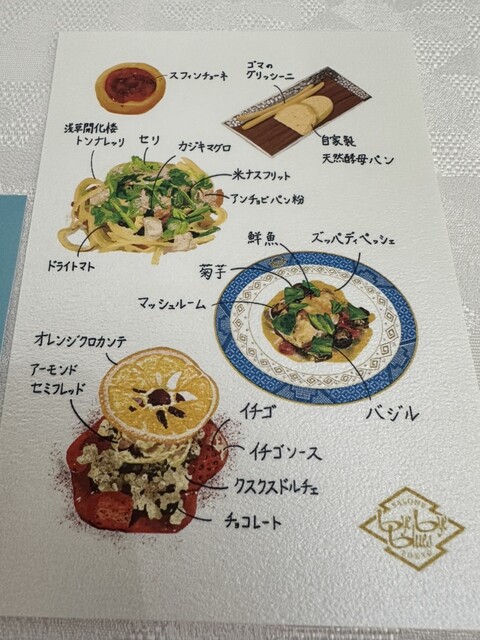 スフィンチョーネ
ゴマの
グリッシーニ
自家製
天然酵母パン
浅草開化楼
トンナレッリ
セリ
カジキマグロ
米ナスフリット
アンチョビパン粉
ドライトマト
鮮魚
ズッパディペッシェ
菊芋
マッシュルーム
バジル
オレンジクロカンテ
アーモンド
セミフレッド
イチゴ
イチゴソース
クスクスドルチェ
チョコレート
bye bye
blues
TOKYO